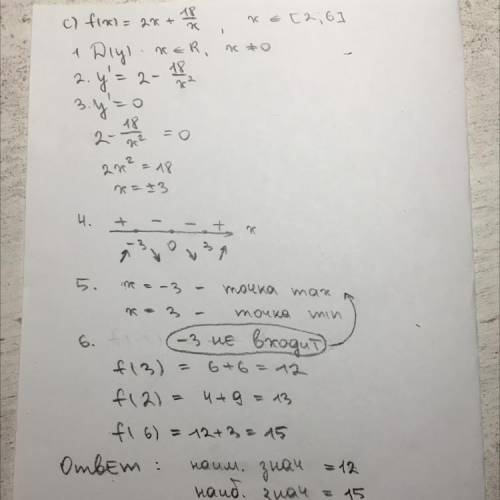 c) f(x) = 2x + 18/x , x ∈ [2,6]
1. D(y) : x ∈ R, x ≠ 0
2. y' = 2 - 18/x²
3. y' = 0
2 - 18/x² = 0
2x² = 18
x = ±3
4. + - - + x
-3 0 3
5. x = -3 - точка max
x = 3 - точка min
6. -3 не входит
f(3) = 6+6 = 12
f(2) = 4+9 = 13
f(6) = 12+3 = 15
Ответ : наим. знач = 12
наиб. знач = 15